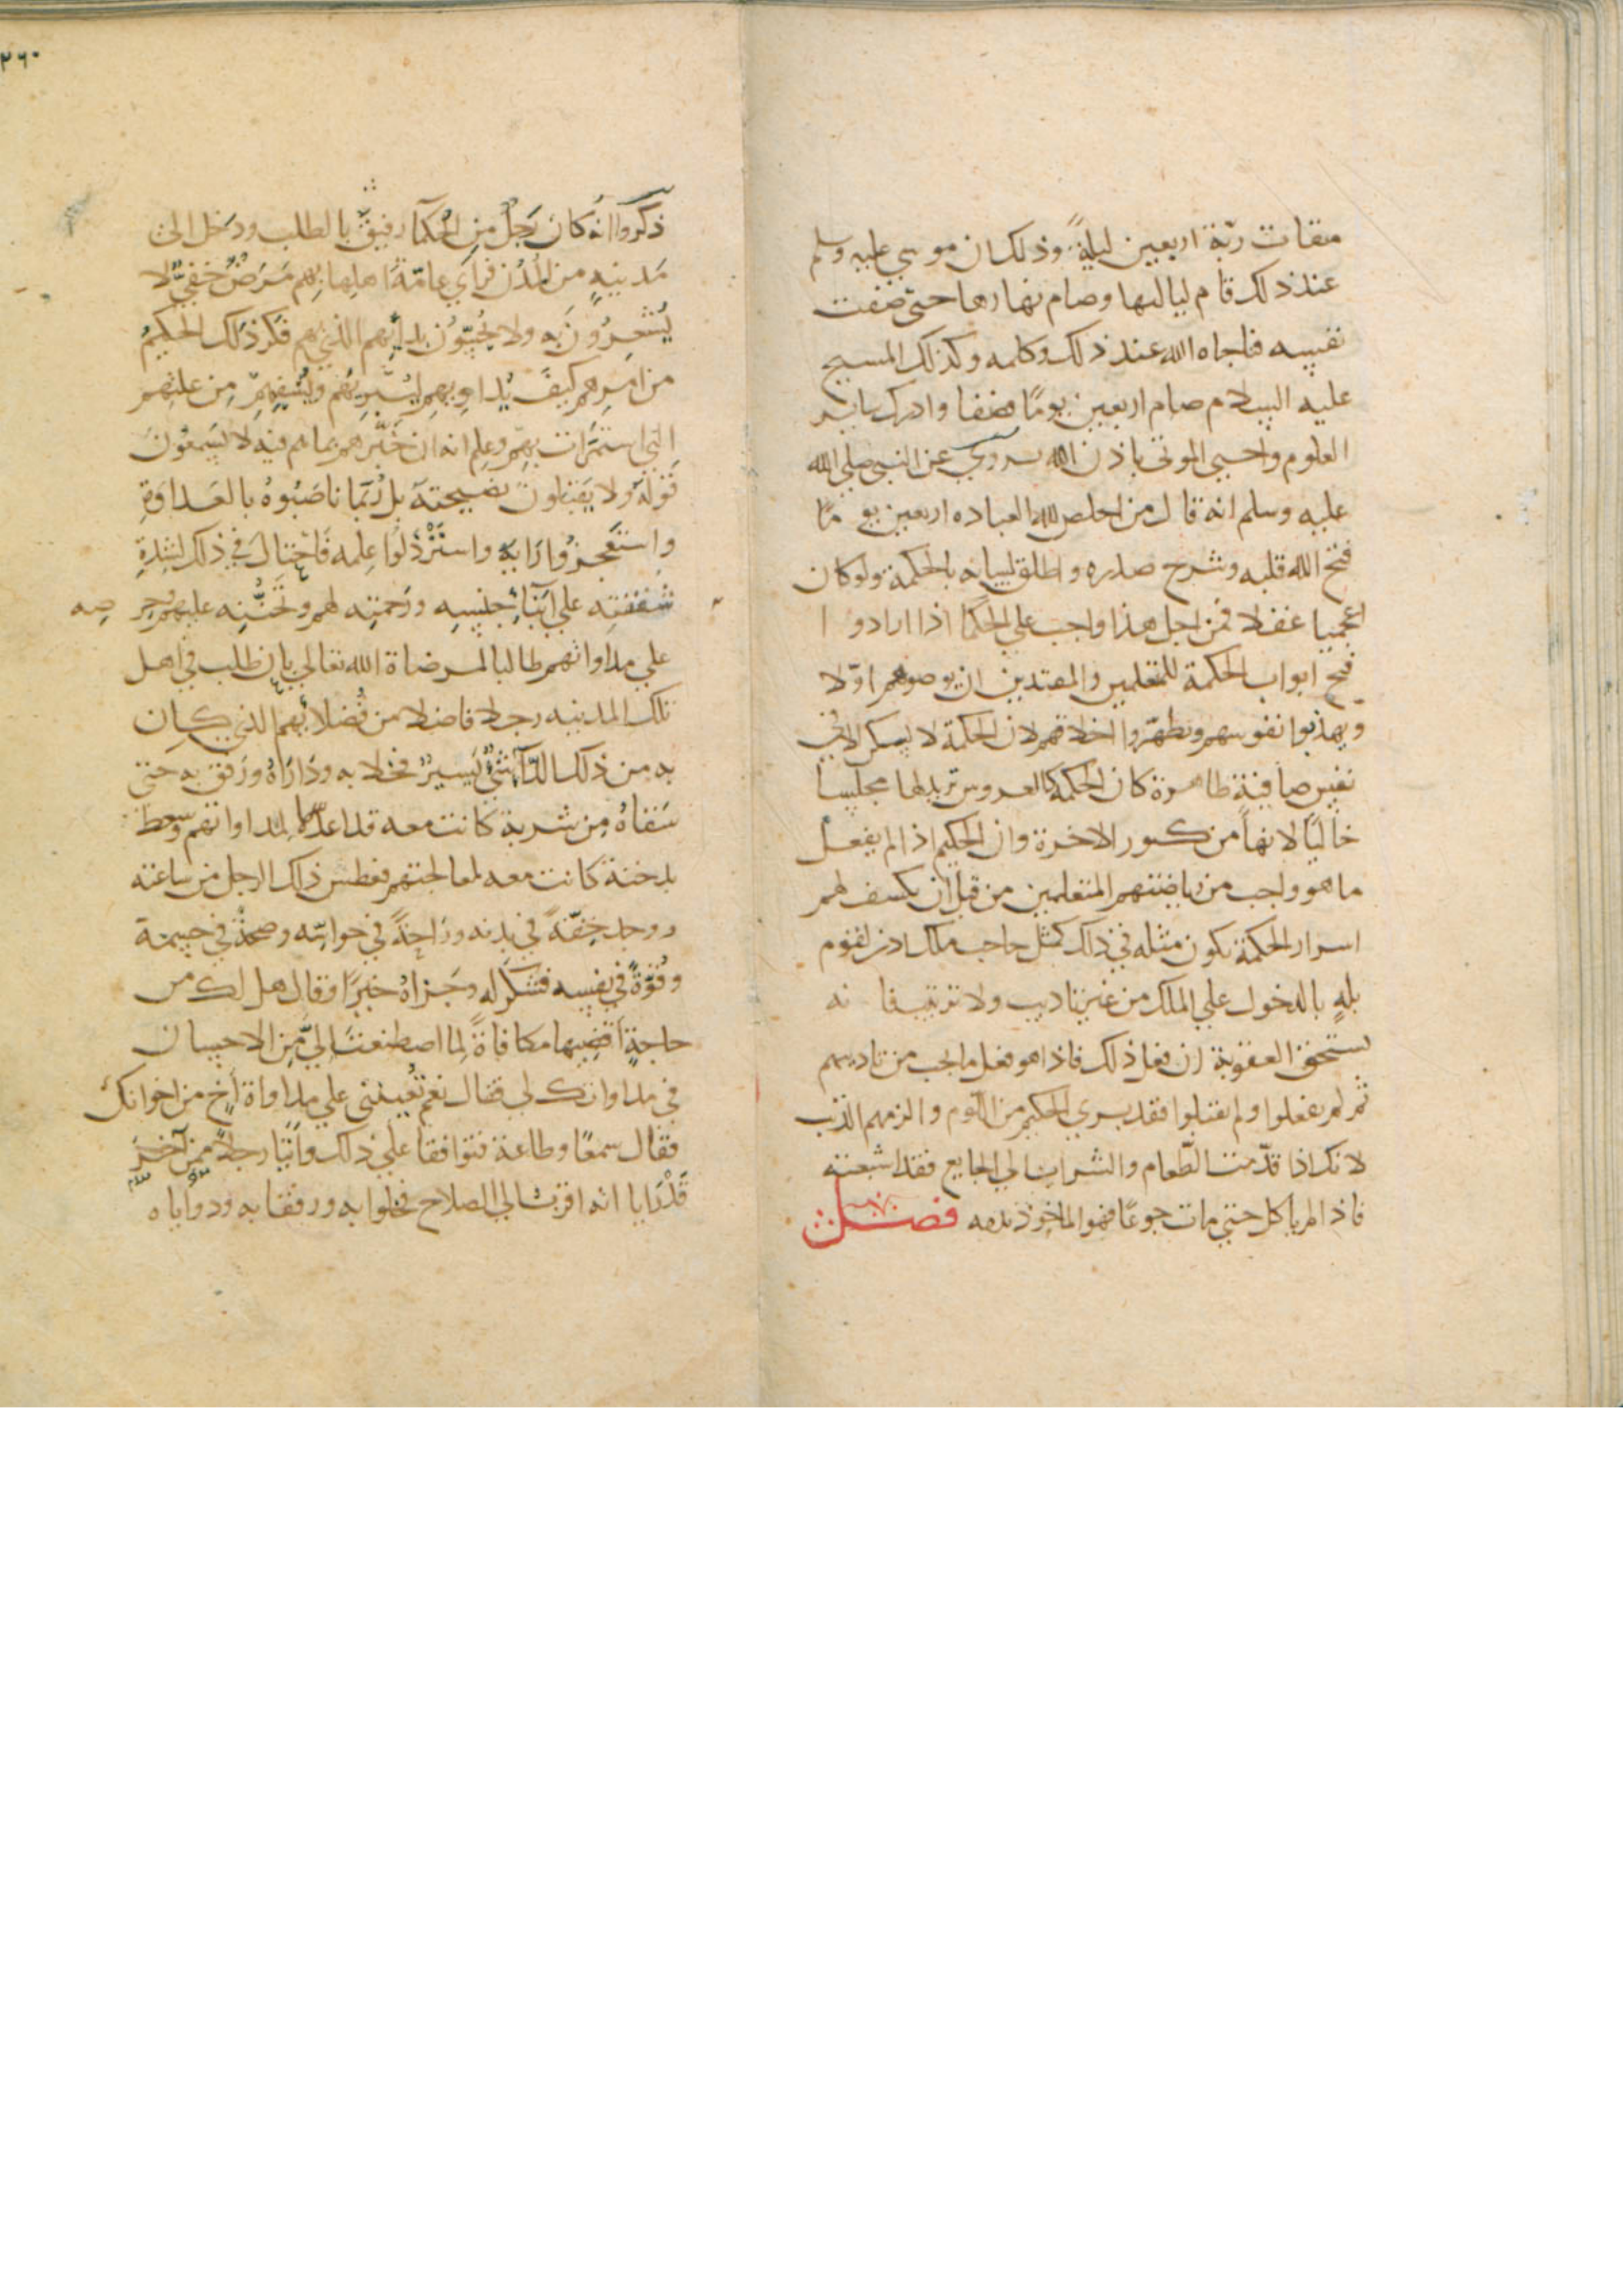 ميقات ربه اربعين ليلةً وذلك ان موسي عليه وسلم
عند ذلك قام لياليها وصام نهارها حتى صفت
نفسه فناجاه الله عند ذلك وكلمه وكذلك المسيح
عليه السلام صام اربعين يومًا فصفا وادرك ساير
العلوم واحيى الموتى باذن الله يروي عن النبي صلى الله
عليه وسلم انه قال من اخلص لله العباده اربعين يومًا
فتح الله قلبه وشرح صدره واطلق لسانه بالحكمة ولو كان
اعجميا غفلا فمن اجل هذا واجب علي الحكما اذا ارادوا
فتح ابواب الحكمة للمتعلمين والمبتدين ان يروضوهم اوّلا
ويهذبوا نفوسهم ويطهّروا اخلاقهم لان الحكمة لا تسكن الا في
نفس صافية طاهرة كان الحكمة كالعروس تريد لها مجلسا
خاليًا لانها من كنوز الاخرة وان الحكيم اذا لم يفعل
ما هو واجب من رياضتهم المتعلمين من قبل ان يكشف لهم
اسرار الحكمة يكون مثله في ذلك كمثل حاجب ملك اذن لقوم
بلهٍ بالدخول علي الملك من غير تاديب ولا ترتيب فانه
يستحق العقوبة ان فعل ذلك فاذا هو فعل ما يجب من تاديبهم
ثم لم يفعلوا ولم يقبلوا فقد بري الحكيم من اللوم والزمهم الذنب
لانك اذا قدّمت الطّعام والشراب الي الجايع فقد اشبعته
فاذا لم ياكل حتي مات جوعًا فهو الماخوذ بدمه فصل
٢٦٠
ذكروا انه كان رجلٌ من الحكما رفيقٌ بالطب ودخل الى
مدينةٍ من المُدن فراي عامّة اهلها بهم مَرَضٌ خفيٌّ لا
يُشعِرُون به ولا يُحِسّون بدائهم الذي بهم ففكّر ذلك الحكيمُ
من امرهم كيفَ يُداويهم ليُبريَهم ويشفيهم من علتهم
التي استمرّت بهم وعلم انه ان خَبّرهم بما هم فيه لا يسمعُونَ
قوله ولا يقبلون نصيحته بل رُبما ناصَبُوهُ بالعَداوةِ
واستعجزُوا رايه واسترذلوا علمه فاحتال في ذلك لشدةِ
شفقته علي ابناء جنسِه ورحمته لهم وتحنُّنه عليهم وحرصه
علي مداواتهم طالبا لمرضاة الله تعالي بان طلب في اهل
تلك المدينه رجلا فاضلا من فُضلائهم الذي كان
به من ذلك الدّاء شيٌ يسيرٌ فخلا به ودَاراهُ ورفق به حتي
سَقاهُ من شربة كانت معه قد اعدّها لمداواتهم وسعط
بدخنة كانت معه لمعالجتهم فعطس ذلك الرجل من ساعته
ووجد خفّةً في بدنه وراحةً في حواسّه وصحةً في جسمه
وقُوّةً في نفسه فشكر له وجزاهُ خيرًا وقال هل لك من
حاجةٍ اقضيها مكافاةً لما اصطنعتَ اليَّ من الاحسان
في مداواتك لي فقال نعم تُعِينني علي مداواة اخٍ من اخوانك
فقال سمعًا وطاعة فتوافقا علي ذلك واتيا رجلاً ممن آخرَ
قَدْ رَايا انه اقربُ الي الصلاح فخلوا به ورفقا به وداوياه